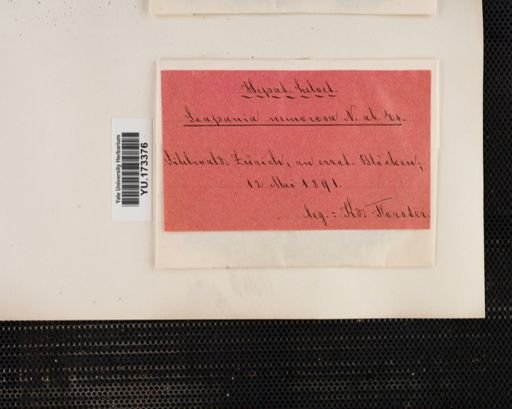 Hepat. helvet.
Scapania nemorosa N. ab Es.
Sihlwald. Zürich, an errat. Blöcken;
12. Mai 1891.
leg.: Hd. Forster.
Yale University Herbarium
YU.173376